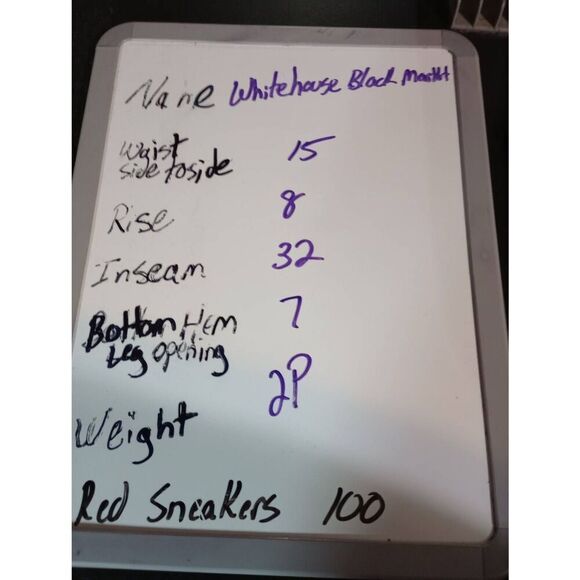 Name Whitehouse Black Market
Waist side to side 15
Rise 8
Inseam 32
Bottom Hem Leg opening 7
Weight 2P
Red Sneakers 100